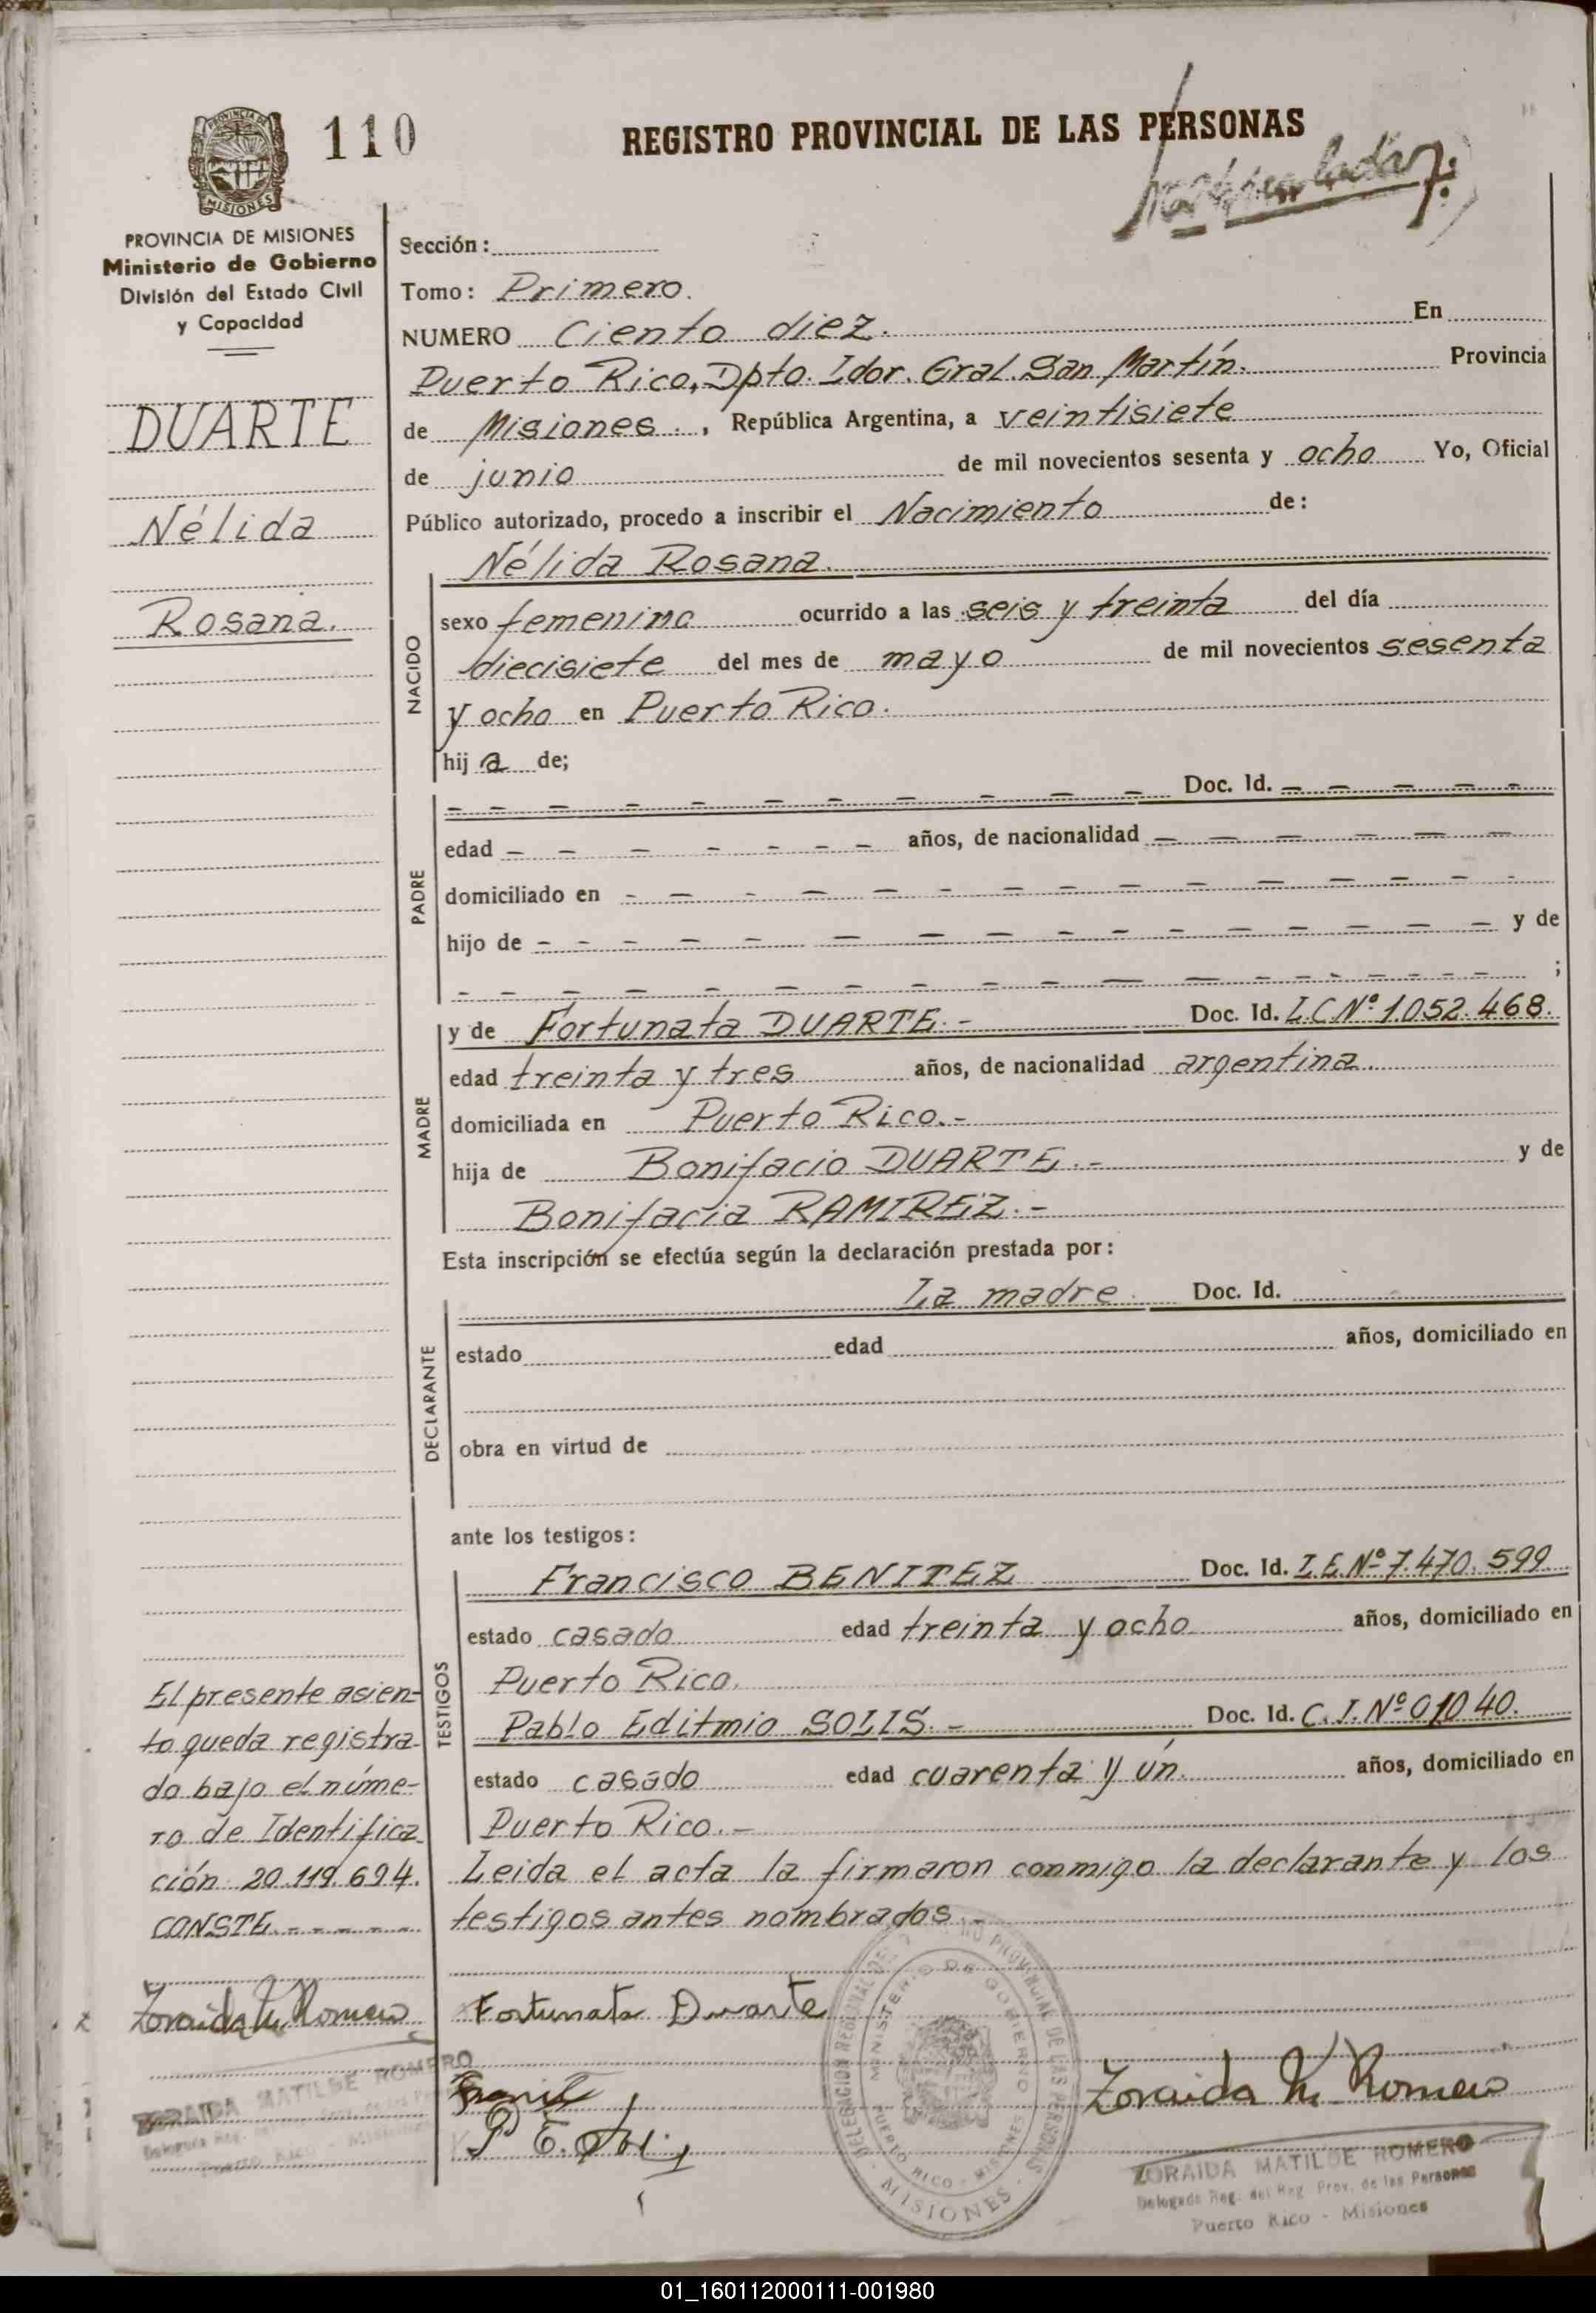 110
REGISTRO PROVINCIAL DE LAS PERSONAS
PROVINCIA DE MISIONES
Ministerio de Gobierno
División del Estado Civil
y Capacidad
DUARTE
Nélida
Rosana.
Sección:
Tomo: Primero.
NUMERO Ciento diez. En
Puerto Rico, Dpto. Ldor. Gral. San Martín. Provincia
de Misiones., República Argentina, a veintisiete
de junio de mil novecientos sesenta y ocho Yo, Oficial
Público autorizado, procedo a inscribir el Nacimiento de:
NACIDO
Nélida Rosana.
sexo femenino ocurrido a las seis y treinta del día
diecisiete del mes de mayo de mil novecientos sesenta
y ocho en Puerto Rico.
hij a de;
PADRE
Doc. Id.
edad años, de nacionalidad
domiciliado en
hijo de y de
;
MADRE
y de Fortunata DUARTE.- Doc. Id. L.C.Nº 1.052.468.
edad treinta y tres años, de nacionalidad argentina.
domiciliada en Puerto Rico.-
hija de Bonifacio DUARTE.- y de
Bonifacia RAMIREZ.-
Esta inscripción se efectúa según la declaración prestada por:
DECLARANTE
La madre. Doc. Id.
estado edad años, domiciliado en
obra en virtud de
ante los testigos:
TESTIGOS
Francisco BENITEZ Doc. Id. L.E.Nº 7.470.599
estado casado edad treinta y ocho años, domiciliado en
Puerto Rico.
Pablo Editmio SOLIS.- Doc. Id. C.I.Nº 01040.
estado casado edad cuarenta y un. años, domiciliado en
Puerto Rico.-
Leida el acta la firmaron conmigo la declarante y los
testigos antes nombrados.-
El presente asien-
to queda registra-
do bajo el núme-
ro de Identifica
ción 20.119.694.
CONSTE.
Zoraida M. Romero
ZORAIDA MATILDE ROMERO
Fortunata Duarte
DELEGACION REGIONAL DEL REGISTRO PROVINCIAL DE LAS PERSONAS
MINISTERIO DE GOBIERNO
PUERTO RICO - MISIONES
MISIONES
Zoraida M. Romero
ZORAIDA MATILDE ROMERO
Delegada Reg. del Reg. Prov. de las Personas
Puerto Rico - Misiones
01_160112000111-001980